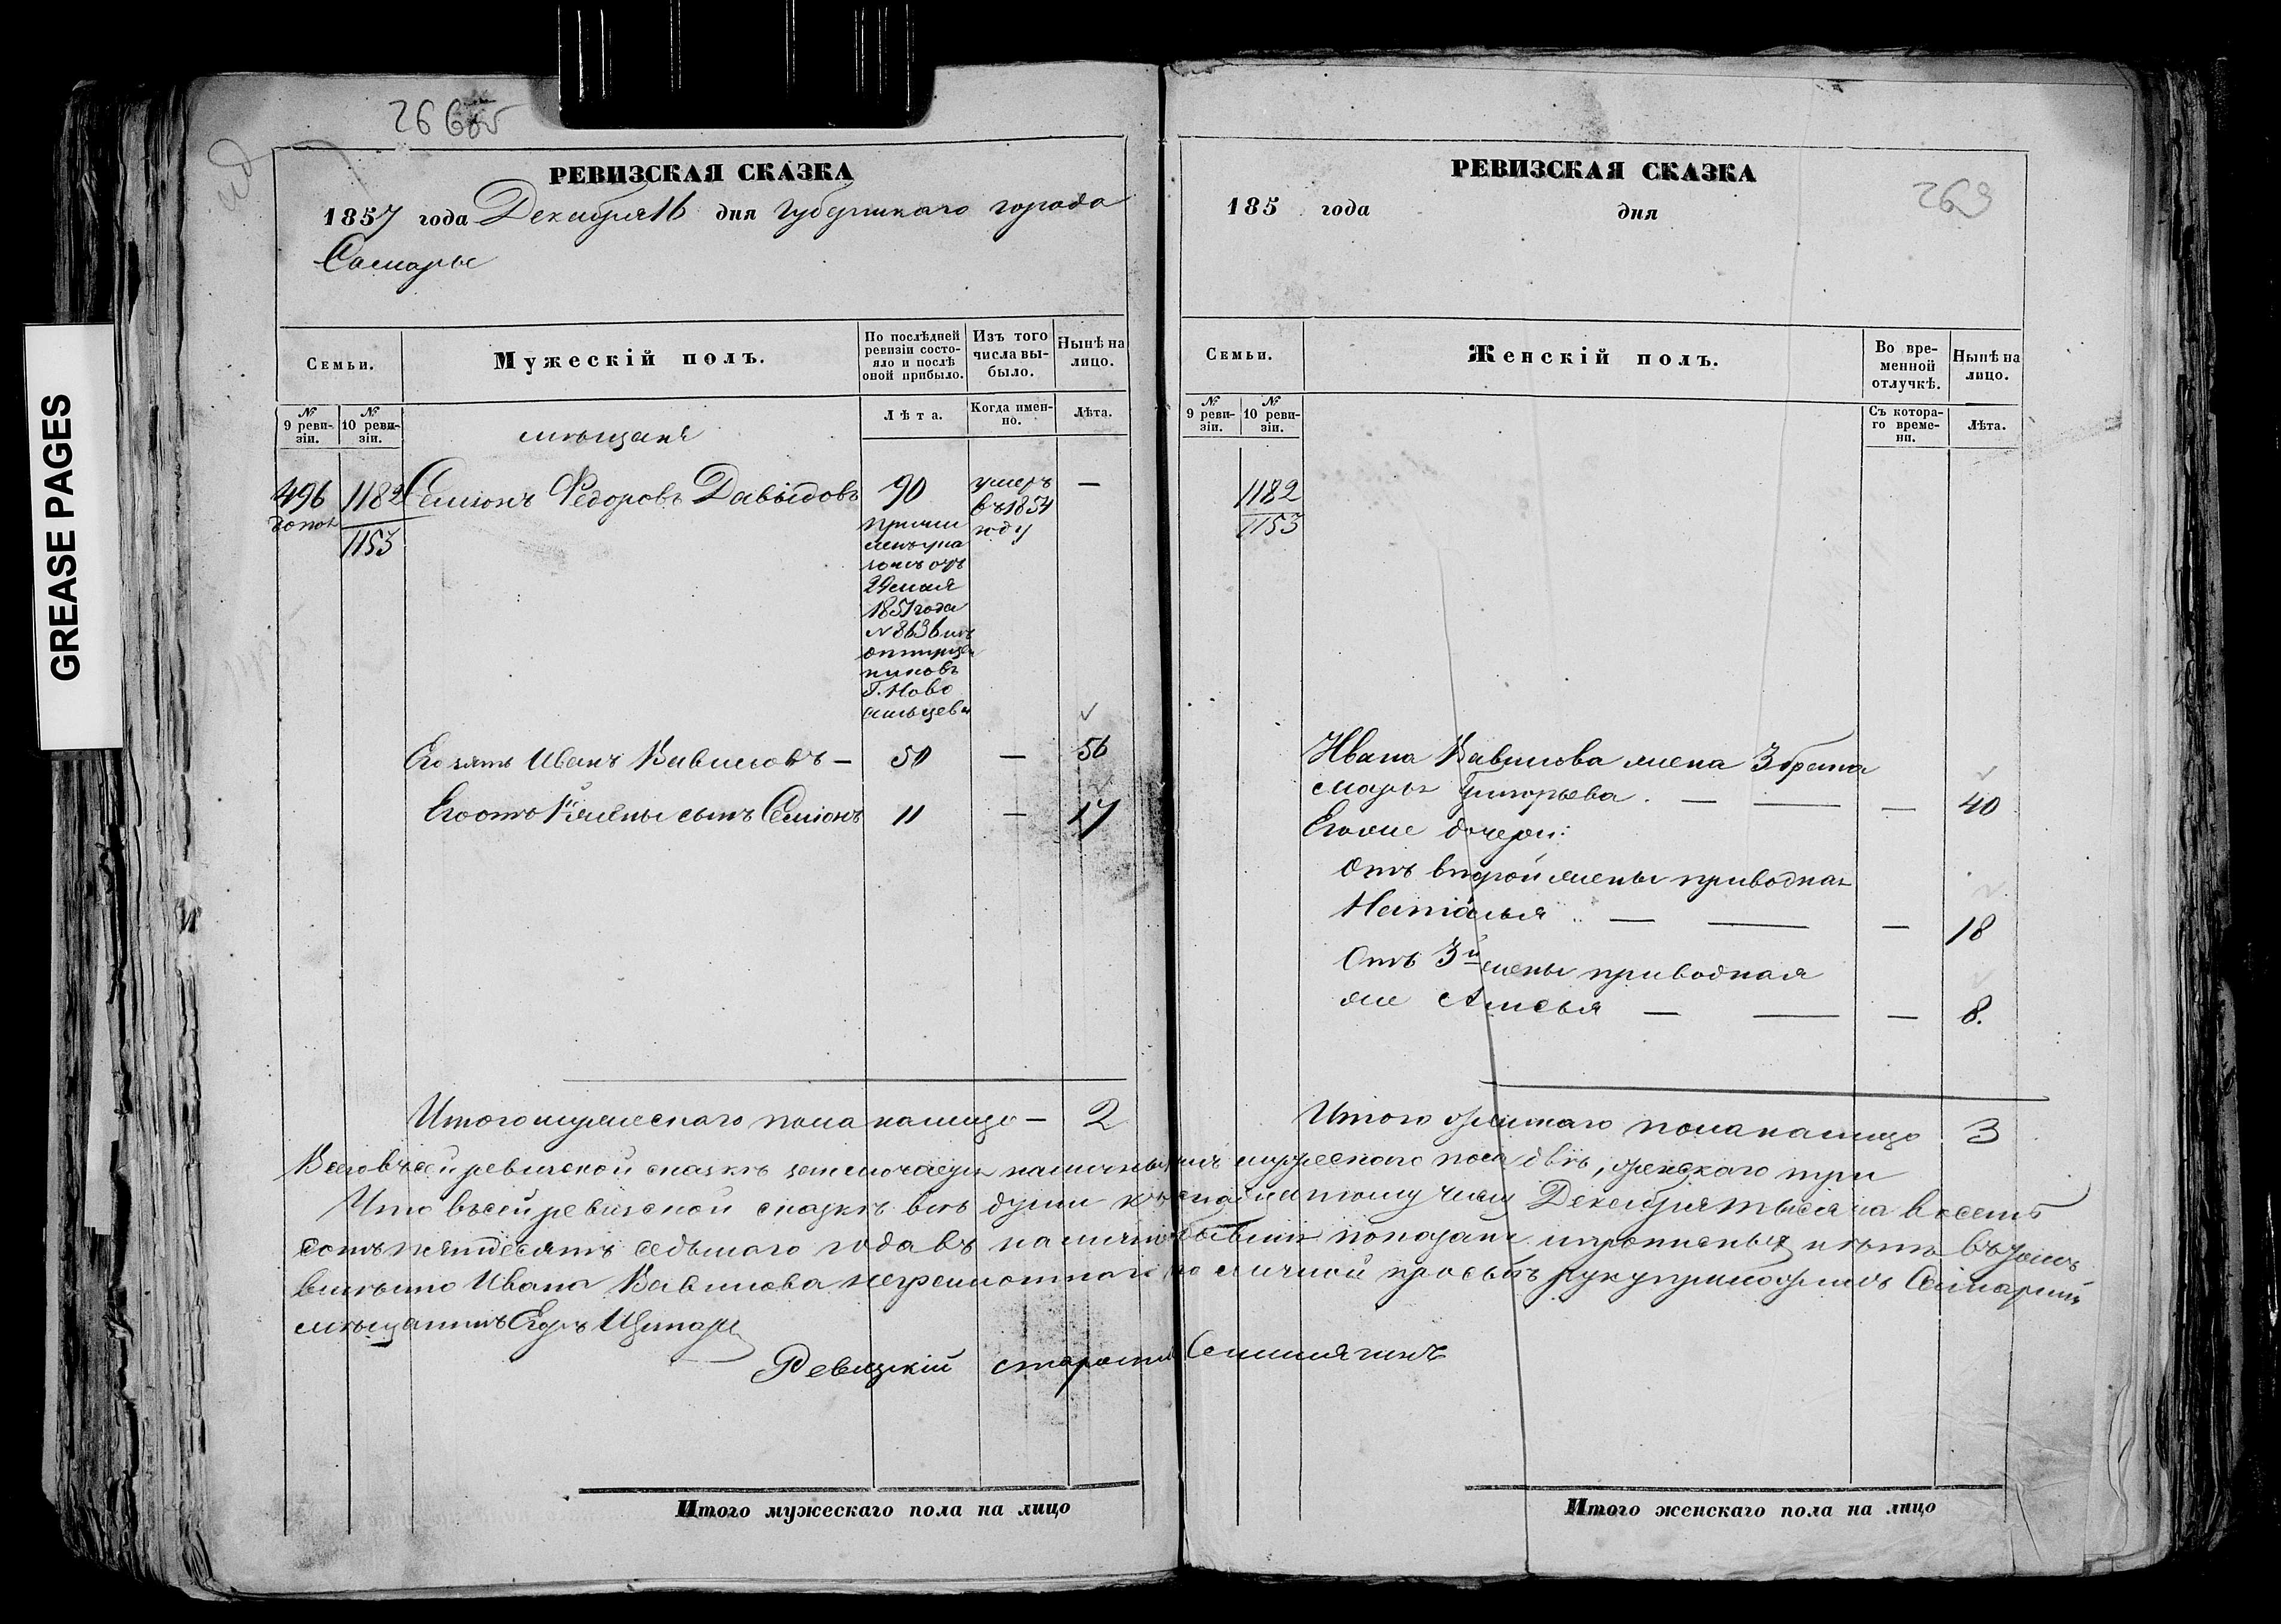 GREASE PAGES
268об
РЕВИЗСКАЯ СКАЗКА
1857 года Декабря 16 дня Губернскаго города
Самары
Семьи.
Мужескій полъ.
По послѣдней ревизіи состояло и послѣ оной прибыло.
Изъ того числа выбыло.
Нынѣ на лицо.
№ 9 ревизіи.
№ 10 ревизіи.
мѣщане
Лѣта.
Когда именно.
Лѣта.
496 1182 Семіонъ Ѳедоровъ Давыдовъ 90 умеръ —
допол 1153 въ 1854
году
причи
сленъ ука
зомъ отъ
29 мая
1851 года
№ 8636 изъ
отпущен
никовъ
Г. Ново
сильцева
Его зять Иванъ Вавиловъ — 50 — 56
Его отъ 1й жены сынъ Семіонъ 11 — 17
Итого мужескаго пола на лицо — 2
269
РЕВИЗСКАЯ СКАЗКА
185 года дня
Семьи.
Женскій полъ.
Во временной отлучкѣ.
Нынѣ на лицо.
№ 9 ревизіи.
№ 10 ревизіи.
Съ котораго времени.
Лѣта.
1182
1153
Ивана Вавилова жена 3 брака
Марья Григорьева — — — 40
Егоже дочери:
Отъ второй жены приводная
Наталья — — — 18
Отъ 3й жены приводная
же Анисья — — — 8.
Итого женскаго пола на лицо 3
Всего в сей ревизской сказкѣ заключается наличныхъ мужескаго пола двѣ, женскаго три
Что въ сей ревизской сказкѣ всѣ души къ шестнадцатому числу Декабря тысяча восемь
сотъ пятьдесятъ седьмаго года въ наличности бывшія показаны и пропискныхъ нѣтъ въ томъ
вмѣсто Ивана Вавилова неграмотнаго по личной прозьбѣ руку приложилъ Самарскій
мѣщанинъ Егоръ
Ревизскій староста
Итого мужескаго пола на лицо
Итого женскаго пола на лицо